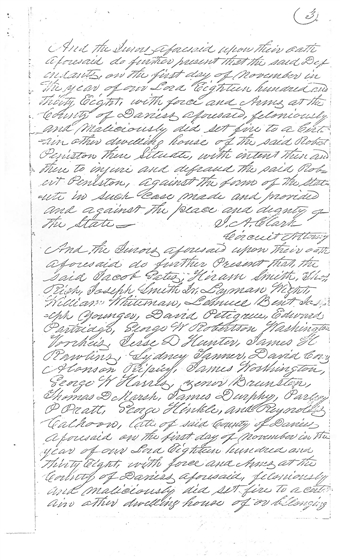 (3)
And the Jurors aforesaid upon their oath
aforesaid do further present that the said Def
endants, on the first day of November in
the year of our Lord Eighteen hundred and
thirty Eight, with force and Arms at the
County of Daviess aforesaid, feloniously
and Maliciously did set fire to a Cert-
ain other dwelling house of the said Robert
Peniston there situate, with intent then and
there to injure and defraud the said Rob
ert Peniston, against the form of the Stat-
ute in such Case made and provided
and against the peace and dignity of
the State
J. A. Clark
Circuit Attorney
And the Jurors aforesaid upon their oath
aforesaid do further Present that the
said Jacob Gates, Hiram Smith,
Rish, Joseph Smith Jr Lyman Wight,
William Whiteman, Lemuel Bent
eph Younger, David Pettigrew, Edward
Partridge, George W Robertson Washington
Voorheis, Jesse D Hunter, James H
Rawlins, Sydney Tanner, David
Alonson Ripley, James Worthington,
George W Harris,
Thomas D Marsh, James Durphy, Parley
P Pratt, George Hinkle, and Reynolds
Calhoon, late of said County of Daviess
aforesaid on the first day of November in the
year of our Lord Eighteen hundred and
thirty Eight, with force and Arms at the
County of Daviess aforesaid, feloniously
and maliciously did set fire to a cert-
ain other dwelling house of or belonging